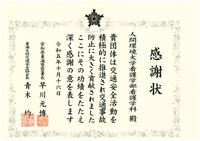 感謝状
人間環境大学看護学部看護学科 殿
貴団体は交通安全活動を
積極的に推進され交通事故
防止に大きく貢献されました
ここにその功績をたたえ
深く感謝の意を表します
令和五年十月十六日
早川元博
青木 均